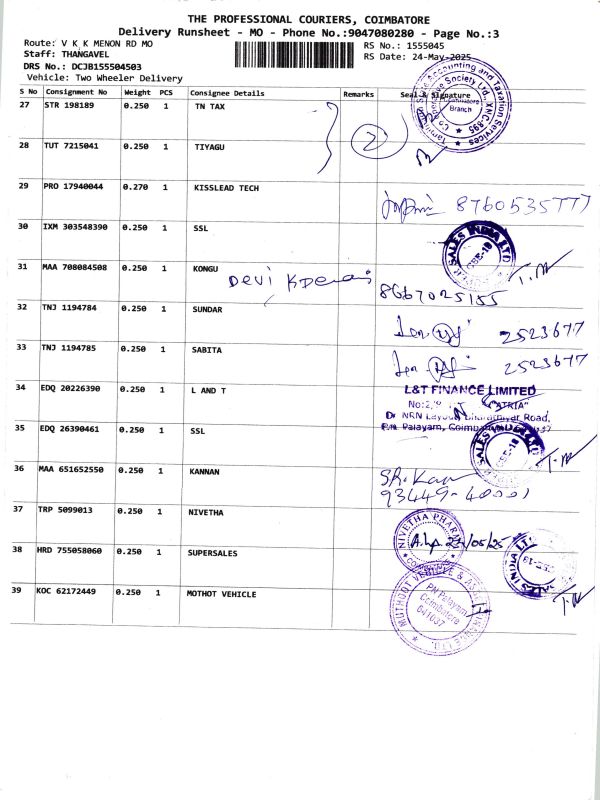 THE PROFESSIONAL COURIERS, COIMBATORE
Delivery Runsheet - MO - Phone No.:9047080280 - Page No.:3
Route: V K K MENON RD MO
Staff: THANGAVEL
DRS No.: DCJB155504503
Vehicle: Two Wheeler Delivery
RS No.: 1555045
RS Date: 24-May-2025
S No Consignment No Weight PCS Consignee Details Remarks Seal & Signature
27 STR 198189 0.250 1 TN TAX
2
28 TUT 7215041 0.250 1 TIYAGU
29 PRO 17940044 0.270 1 KISSLEAD TECH
8760535777
30 IXM 303548390 0.250 1 SSL
SALES INDIA LTD
CBE-18
T.M
31 MAA 708084508 0.250 1 KONGU
Devi
8667025155
32 TNJ 1194784 0.250 1 SUNDAR
2523677
33 TNJ 1194785 0.250 1 SABITA
2523677
34 EDQ 20226390 0.250 1 L AND T
L&T FINANCE LIMITED
"ATRIA"
Dr NRN Layout, Bharathiyar Road,
P.N. Palayam,
35 EDQ 26390461 0.250 1 SSL
SALES INDIA LTD
CBE-18
T.M
36 MAA 651652550 0.250 1 KANNAN
93449-40001
37 TRP 5099013 0.250 1 NIVETHA
NIVETHA PHAR
24/05/25
38 HRD 755058060 0.250 1 SUPERSALES
T.M
39 KOC 62172449 0.250 1 MOTHOT VEHICLE
PN Palayam
Coimbatore
641037